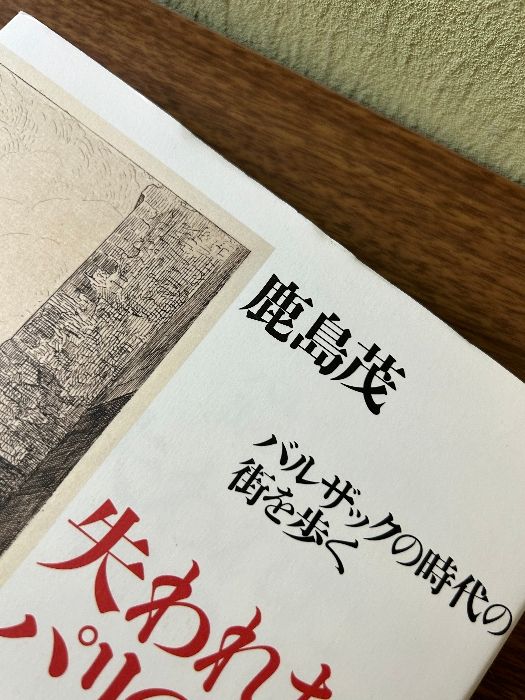 鹿島茂
バルザックの時代の
街を歩く
失われ
パリの